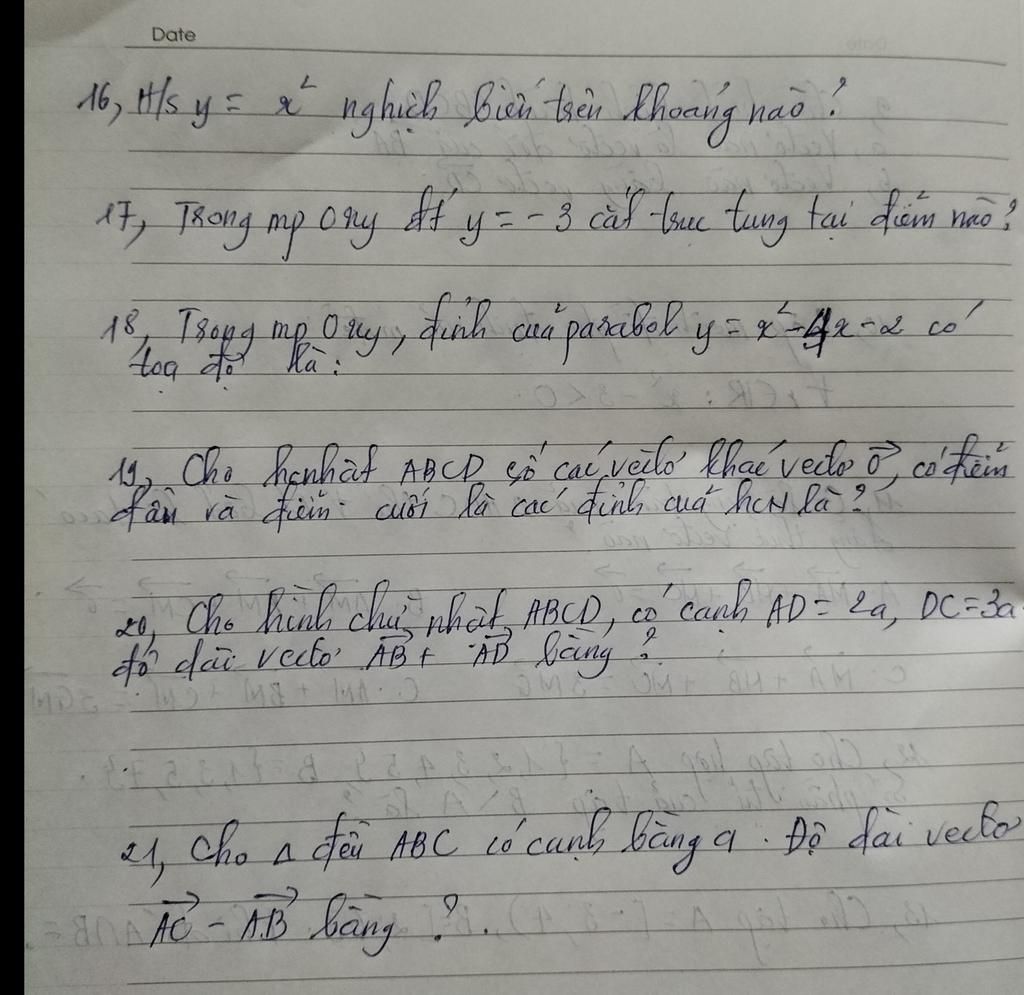 Date
16, H/s y = x² nghịch biến trên khoảng nào?
17, Trong mp Oxy đt y = -3 cắt trục tung tại điểm nào?
18, Trong mp Oxy, đỉnh của parabol y = x² - 4x - 2 có
toạ độ là:
19, Cho hcnhật ABCD số các vectơ khác vectơ 0⃗, có điểm
đầu và điểm cuối là các đỉnh của hcN là?
20, Cho hình chữ nhật ABCD, có cạnh AD = 2a, DC = 3a.
độ dài vectơ AB⃗ + AD⃗ bằng?
21, Cho Δ đều ABC có cạnh bằng a. Độ dài vectơ
AC⃗ - AB⃗ bằng?